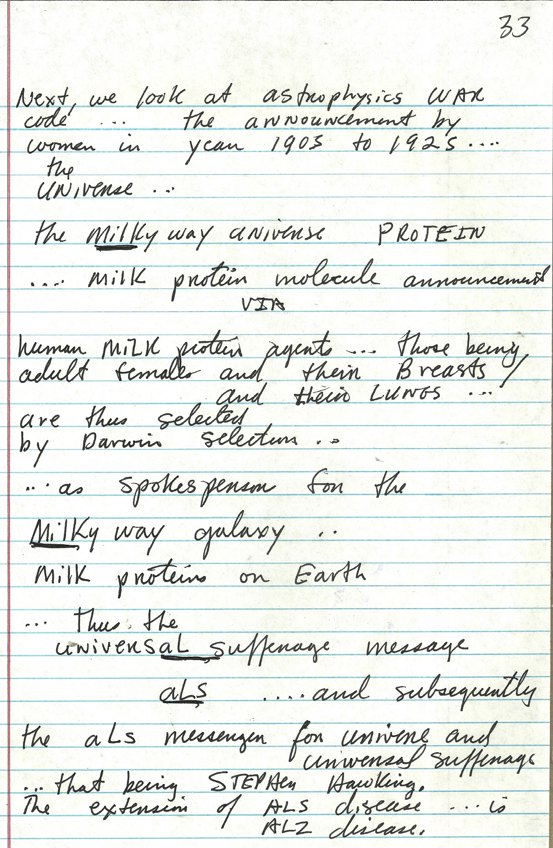 33
Next, we look at astrophysics WAR
code .... the announcement by
women in year 1905 to 1925 ....
the
UNiverse ...
the Milky way universe PROTEIN
.... Milk protein molecule announcement
VIA
human MiLK protein agents .... those being
adult females and their Breasts/
and their LUNGS ....
are thus selected
by Darwin selection ..
... as spokesperson for the
Milky way galaxy ..
Milk proteins on Earth
... thus the
universaL sufferage message
aLS ....and subsequently
the aLs messenger for univere and
universal suffenage
... that being STEPHen Hawking.
The extension of ALS disease .... is
ALZ disease.